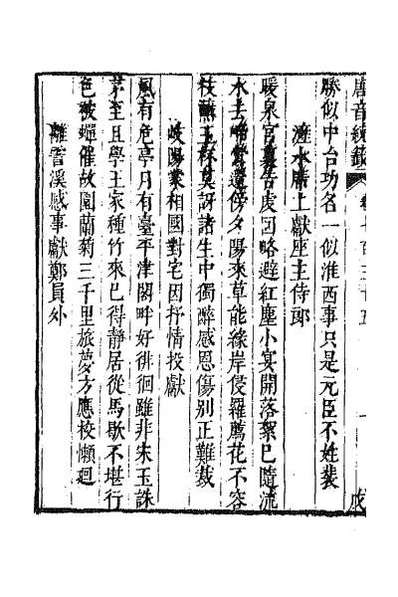 唐音統籤 卷七百三十五 一 戊
勝似中台功名一似淮西事只是元臣不姓裴
滻水席上獻座主侍郎
暖泉宮裏告虔回略避紅塵小宴開落絮已隨流
水去啼鶯還傍夕陽來草能緣岸侵羅薦花不容
枝蘸玉杯莫訝諸生中獨醉感恩傷別正難裁
岐陽蒙相國對宅因抒情投獻
風有危亭月有臺平津閣畔好徘徊雖非朱玉誅
茅至且學王家種竹來已得靜居從馬歇不堪行
色被蟬催故園蘭菊三千里旅夢方應校懶迴
離霅溪感事獻鄭員外